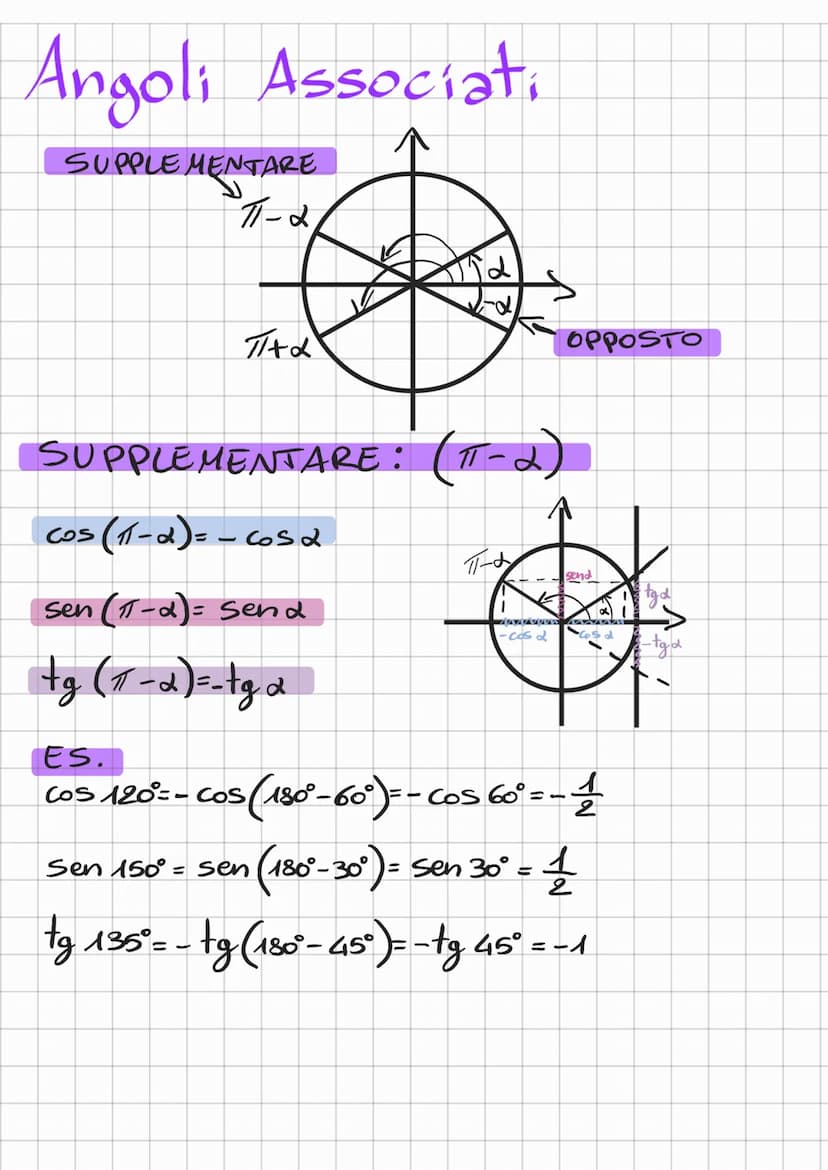 Angoli Associati
SUPPLEMENTARE
π-α
α
-α
OPPOSTO
π+α
SUPPLEMENTARE: (π-α)
cos(π-α)=-cosα
π-α
senα
α
tgα
sen(π-α)=senα
-cosα
cosα
-tgα
tg(π-α)=-tgα
ES.
cos120°=-cos(180°-60°)=-cos60°=-1/2
sen150°=sen(180°-30°)=sen30°=1/2
tg135°=-tg(180°-45°)=-tg45°=-1